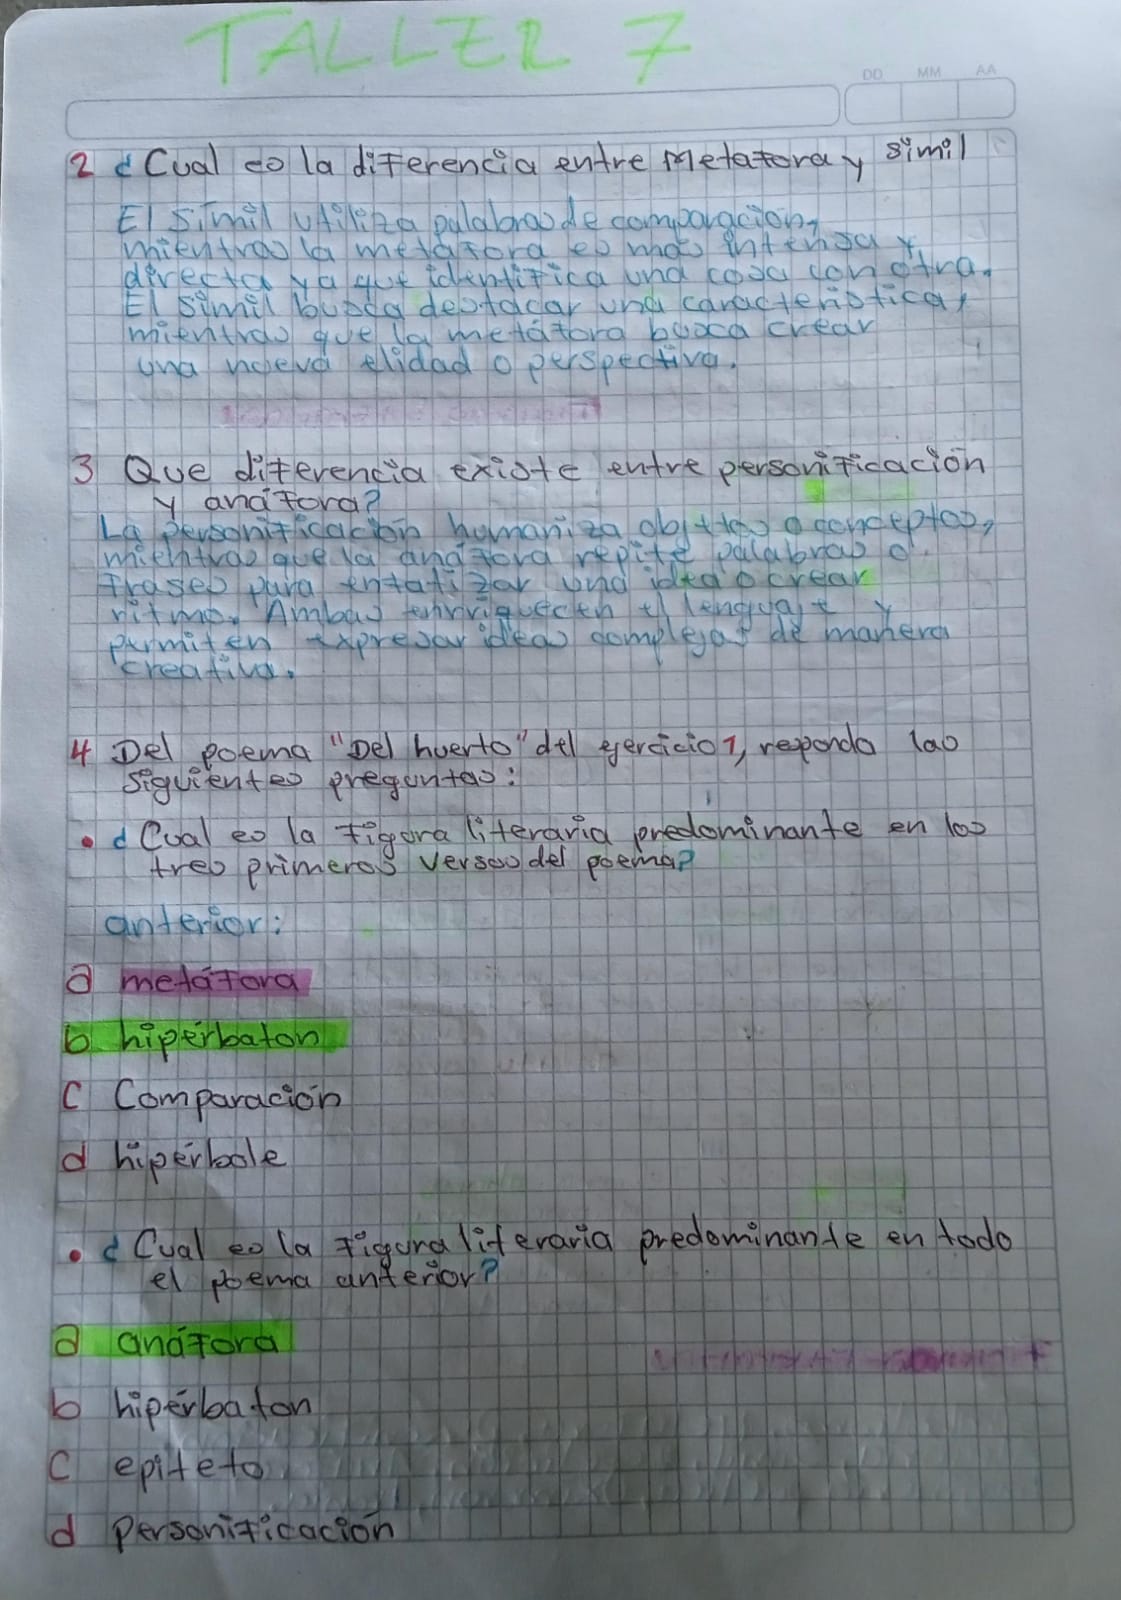 TALLER 7
DD MM AA
2 ¿Cual es la diferencia entre Metafora y simil
El símil utiliza palabras de comparación,
mientras la metáfora es mas intensa y
directa ya que identifica una cosa con otra.
El símil busca destacar una característica,
mientras que la metáfora busca crear
una nueva elidad o perspectiva.
3 Que diferencia existe entre personificación
y anáfora?
La personificación humaniza objetos o conceptos,
mientras que la anáfora repite palabras o
frases para enfatizar una idea o crear
ritmo. Ambas enrriquecen el lenguaje y
permiten expresar ideas complejas de manera
creativa.
4 Del poema "Del huerto" del ejercicio 1, responda las
siguientes preguntas:
• ¿Cual es la figura literaria predominante en los
tres primeros versos del poema?
anterior:
a metáfora
b hipérbaton
c Comparación
d hipérbole
• ¿Cual es la figura literaria predominante en todo
el poema anterior?
a anáfora
b hipérbaton
c epiteto
d personificación